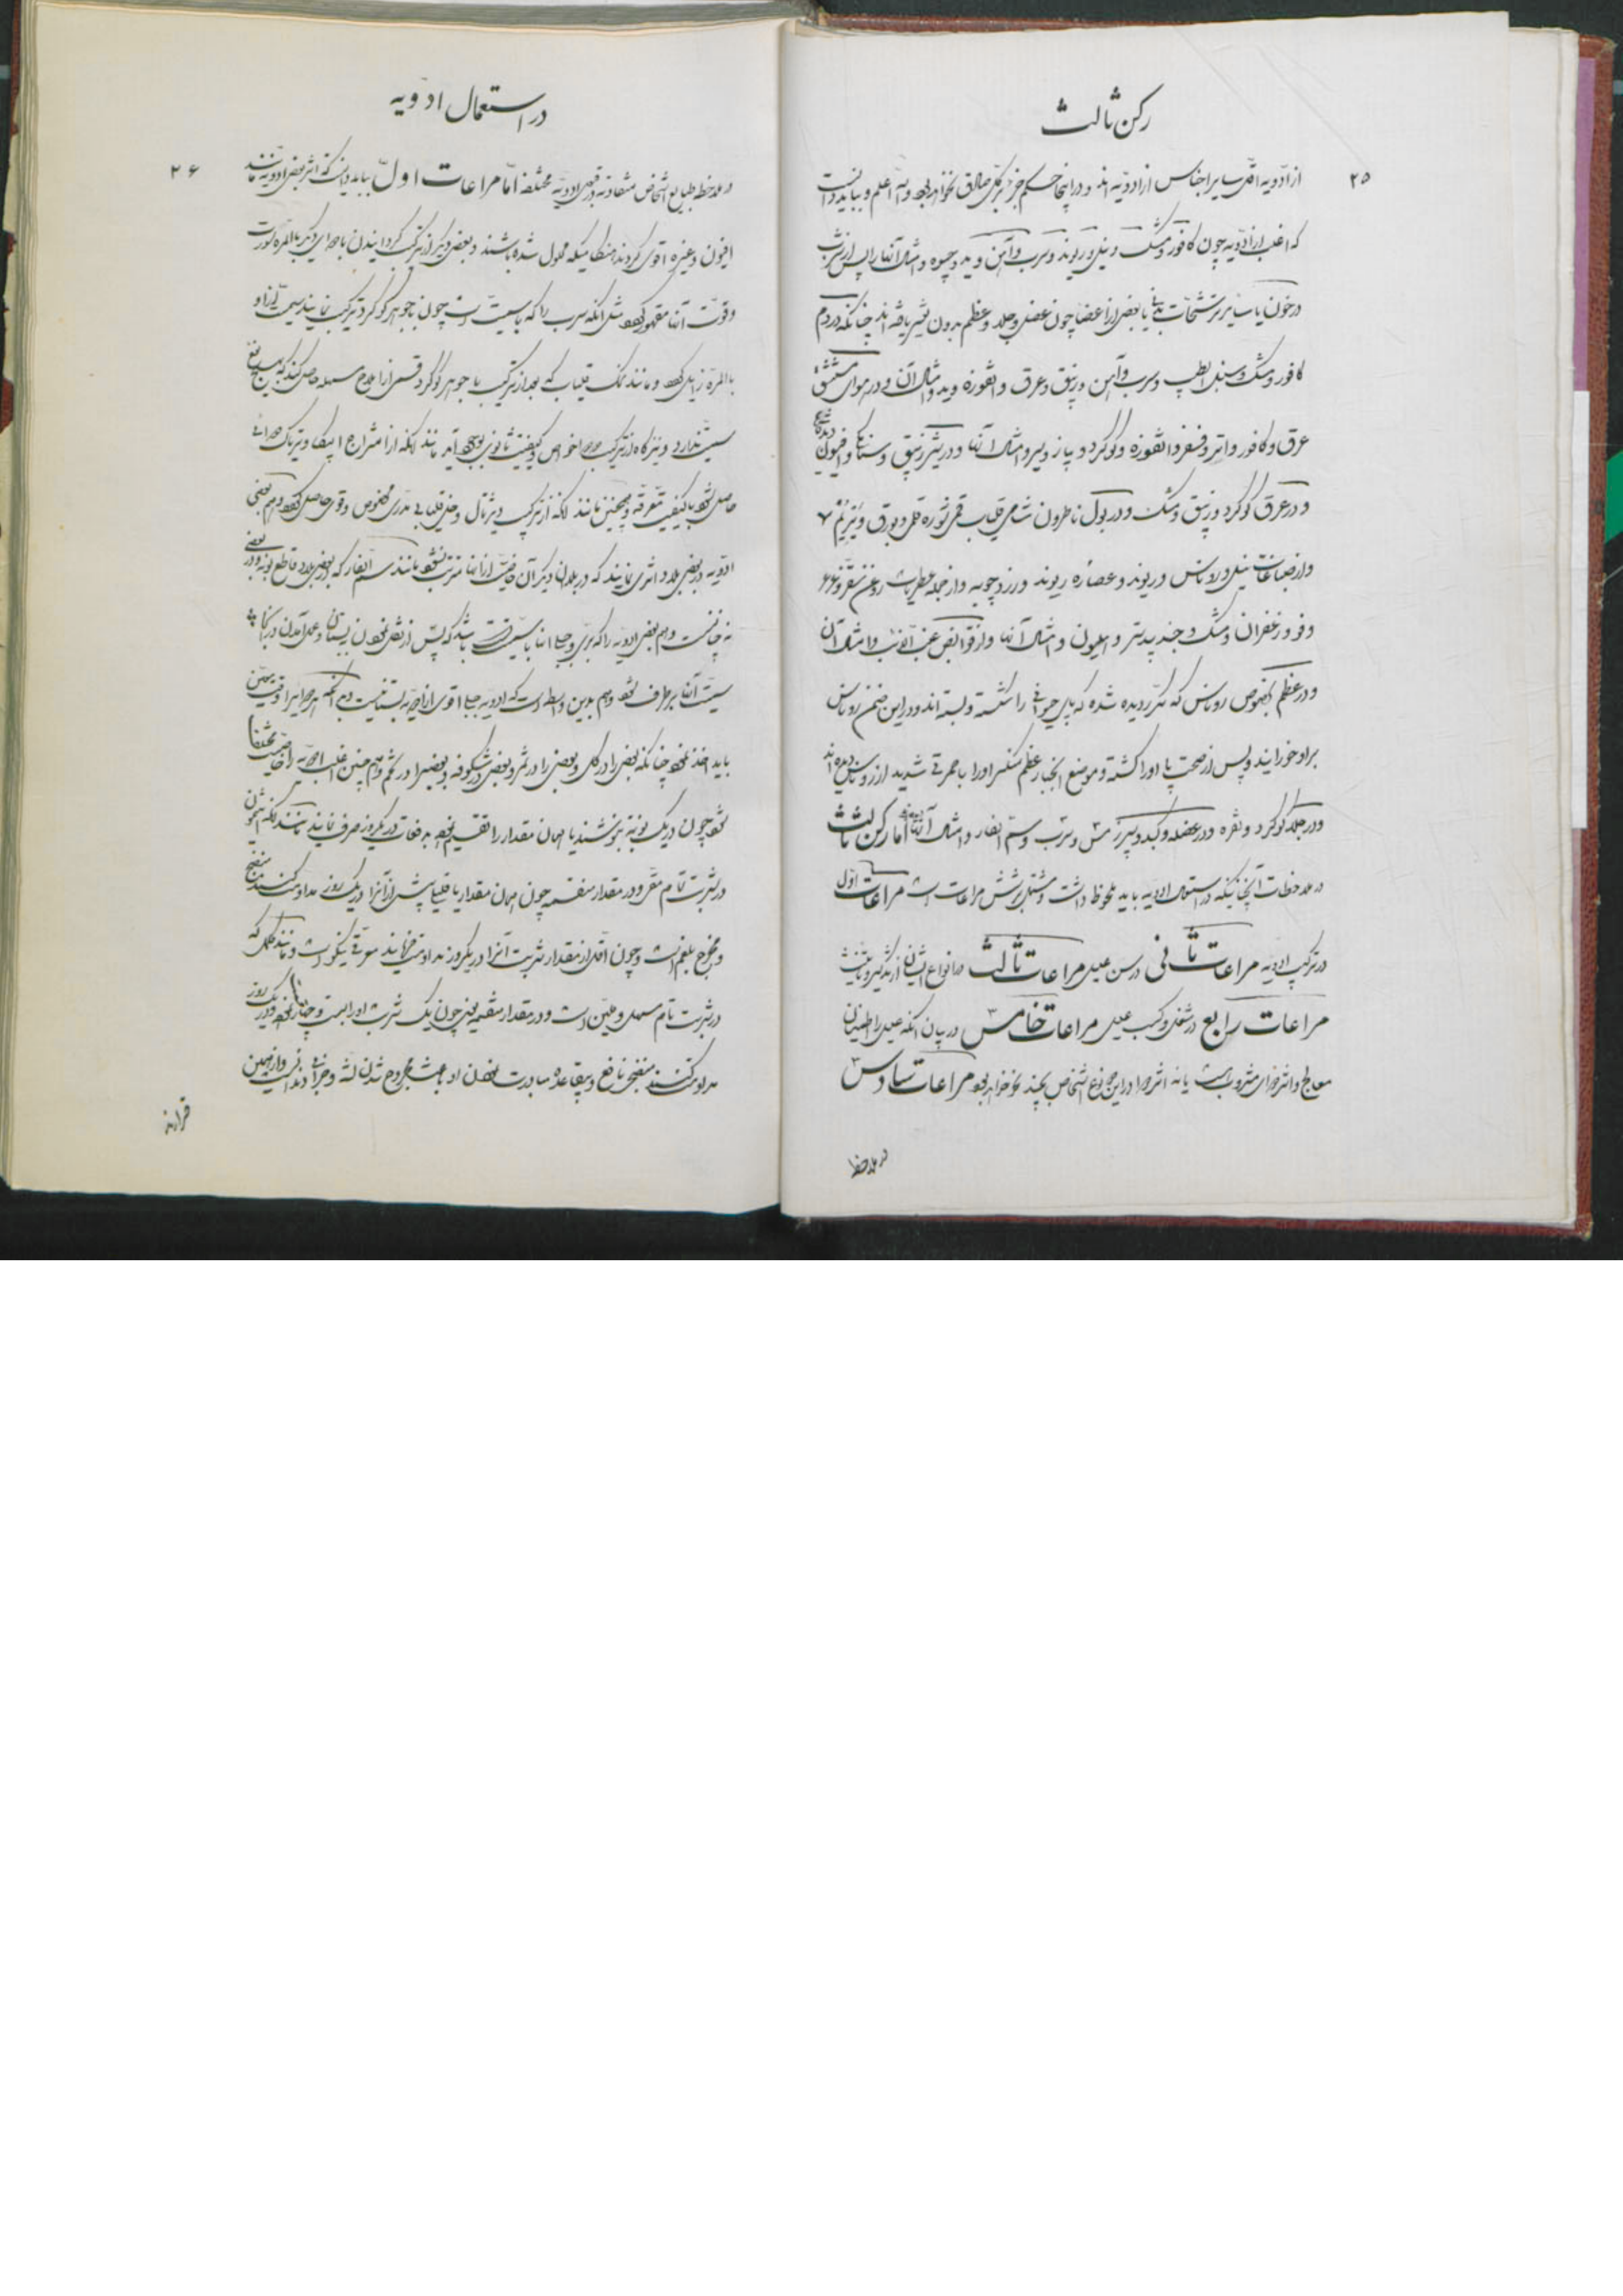 رکن ثالث
۲۵
از ادویه اقل سایر اجناس از ادویه اند و در اینجا حکم جزء بر کل صادق نخواهد بود والله اعلم و بباید دانست
که اغلب از ادویه چون کافور و مشک و نیل و ریوند و سرب و آهن و ید و جیوه و امثال آنها را پس از شرب
در خون یا سایر ترشحات بدنی یا بعضی از اعضا چون عضل و جلد و عظم بدون تغییر یافته اند چنانکه در دم
کافور و مشک و سنبل الطیب و سرب و آهن و زیبق و عرق و انقوزه و ید و امثال آن و در هوای مستنشق
عرق و کافور و اتر و فسفر و انقوزه و گوگرد و پیاز و سیر و امثال آنها و در شیر زیبق و سنا و افیون دیده شده
و در عرق گوگرد و زیبق و مشک و در بول ناطرون شامی قلیاب قمی نوره قلی و بورق و
و از صباغات نیل و روناس و ریوند و عصاره ریوند و زردچوبه و از جمله عطریات روغن سقز و عرعر
و زعفران و مشک و جند بیدستر و امثال آنها و از قوابض عنب الدب و امثال آن
و در عظم بخصوص روناس که مکرر دیده شده که پای حیوانی را شکسته و بسته اند و در این ضمن روناس
بر او خورانیده و پس از صحت پا او را کشته و موضع انجبار عظم منکسر او را با حمرتی شدید از روناس دیده اند
و در جلد گوگرد و نقره و در عضله و کبد و سپرز مس و سرب و سم الفار و امثال آنها اما رکن ثالث
در ملاحظات آنچنانیکه در استعمال ادویه باید ملحوظ داشت و مشتمل بر شش مراعات است مراعات اول
در ترکیب ادویه مراعات ثانی در سن علیل مراعات ثالث در انواع ایشان از تذکیر و تانیث
مراعات رابع در شغل و کسب علیل مراعات خامس در بیان آنکه علیل را اطمینان
معالج و اثر دوای مشروب هست یا نه اثر دوا در این دو نوع اشخاص بچند نحو خواهد بود مراعات سادس
در ملاحظه
در استعمال ادویه
۲۶
در ملاحظه طبایع اشخاص متفاوته در قبول ادویه مختلفه اما مراعات اول بباید دانست که اثر بعضی ادویه مانند
افیون و غیره اقوی گردند هنگامیکه محلول شده باشند و بعضی دیگر از ترکیب گردانیدن با دوای دیگر بالمره سورت
و قوت آنها مقهور شود مثل آنکه سرب را که با سمیت است چون با جوهر گوگرد ترکیب نمایند سمیت از او
بالمره زایل شود و مانند نمک قلیاب که بعد از ترکیب با جوهر گوگرد قسمی از املاح مسهله حاصل کند که هیچ
سمیت ندارد و نیز گاه از ترکیب دو دوا خواص و کیفیت ثانوی بوجود آید مانند آنکه از امتزاج ایپکا و تریاک دوائی
حاصل شود با کیفیت معرقه و همچنین مانند آنکه از ترکیب دیژیتال و خل قلیابی مدری مخصوص و قوی حاصل شود و هم بعضی
ادویه در بعضی بلاد اثری نمایند که در بلدان دیگر آن خاصیت از آنها مترتب نشود مانند سم الفار که در بعضی بلاد قاطع نوبه و در بعضی
نه چنانست و هم بعضی ادویه را که بری و جبلی آنها با سمیت است باشد که پس از نقل نمودن ببستان و عمل آمدن در آنجا
سمیت آنها برطرف شود و هم بدین واسطه است که ادویه جبلی اقوی از ادویه بستانیست و هم آنکه هر دوائی را وقت معین
باید اخذ نمود چنانکه بعضی را در گل و بعضی را در ثمر و بعضی در شکوفه و بعضی را در تخم و هم چنین اغلب ادویه را خاصیت مختلف
شود چون در یک نوبه بنوشند یا همان مقدار را تقسیم نموده به دفعات در یک روز صرف نمایند مانند آنکه انتیمون
در شربت تام مقی و در مقدار منقسمه چون همان مقدار یا قلیلی بیش از آنرا در یک روز مداومت کنند منضج
و مخرج بلغم است و چون اقل از مقدار شربت آنرا در یک روز مداومت فرمایند معرقی نیکو است و مانند کلمل که
در شربت تام مسهل و ملین است و در مقدار منقسمه یعنی چون یک شربت او را بیست و چهار نخود در یک روز
مداومت کنند منضجی نافع و بیقاعده مبادرت نمودن او باعث مجروح شدن لثه و خرابی دندانست و از همین
قرارند